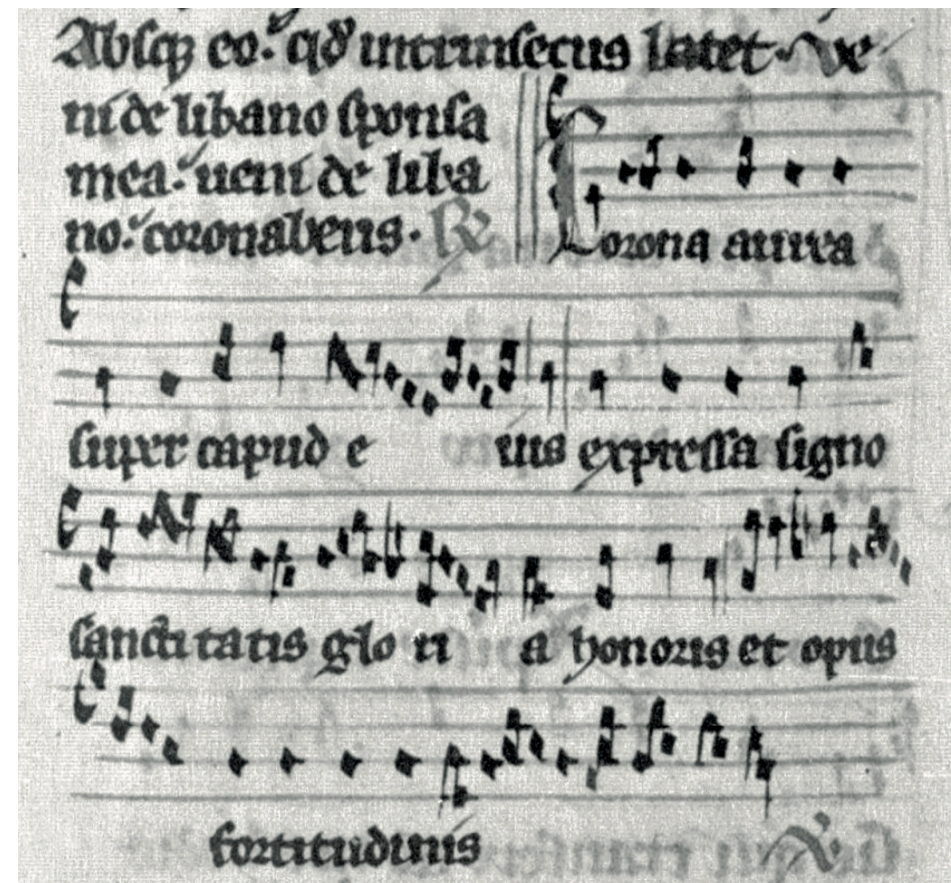 Absq; eo. qd' intrinsecus latet. ve
ni de libano sponsa
mea. ueni de liba
no. coronaberis. R
Corona aurea
super capud e ius expressa signo
sanctitatis glo ri a honoris et opus
fortitudinis
V